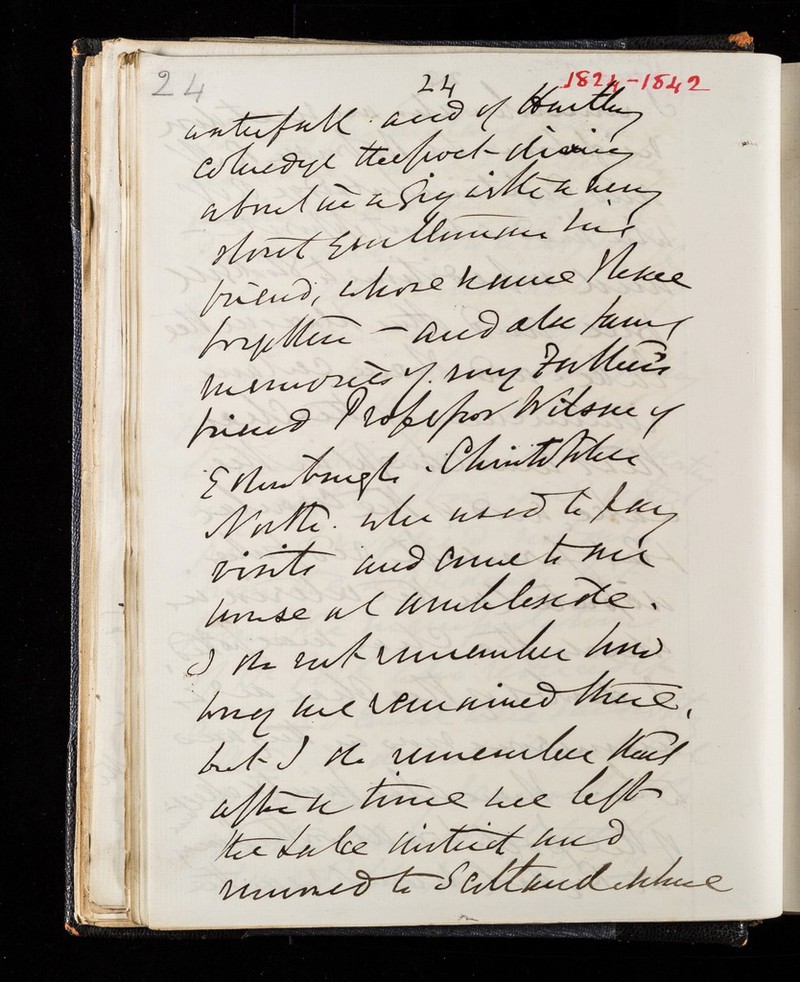 24 24 1824-1842
waterfall and of Hartley
Coleridge the poet driving
about in a Gig with a very
stout Gentleman his
friend, whose name I have
forgotten - and also having
memories of my Father's
friend Professor Wilson of
Edinburgh. Christopher
North. who used to pay
visits and come to our
house at Ambleside.
I do not remember how
long we remained there,
but I do remember that
after a time we left
the Lake district and
moved to Scotland where